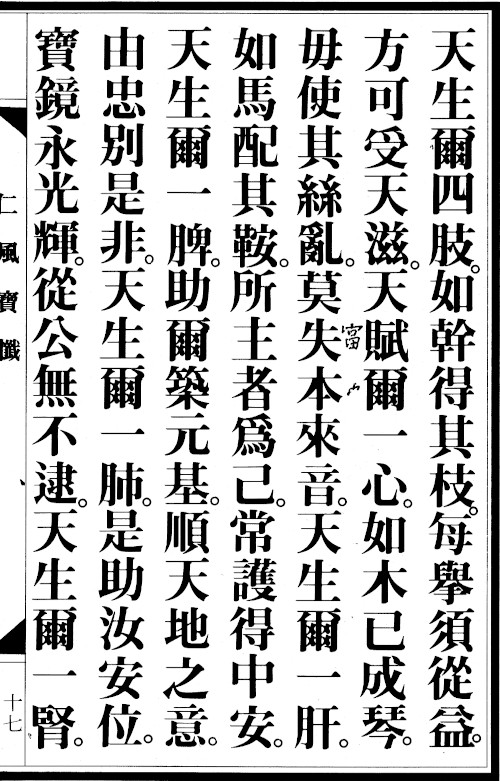 天生爾四肢。如幹得其枝。每舉須從益。
方可受天滋。天賦爾一心。如木已成琴。
毋使其絲亂。莫失本來音。天生爾一肝。
如馬配其鞍。所主者爲己。常護得中安。
天生爾一脾。助爾築元基。順天地之意。
由忠別是非。天生爾一肺。是助汝安位。
寶鏡永光輝。從公無不逮。天生爾一腎。
仁風寶懺
十七